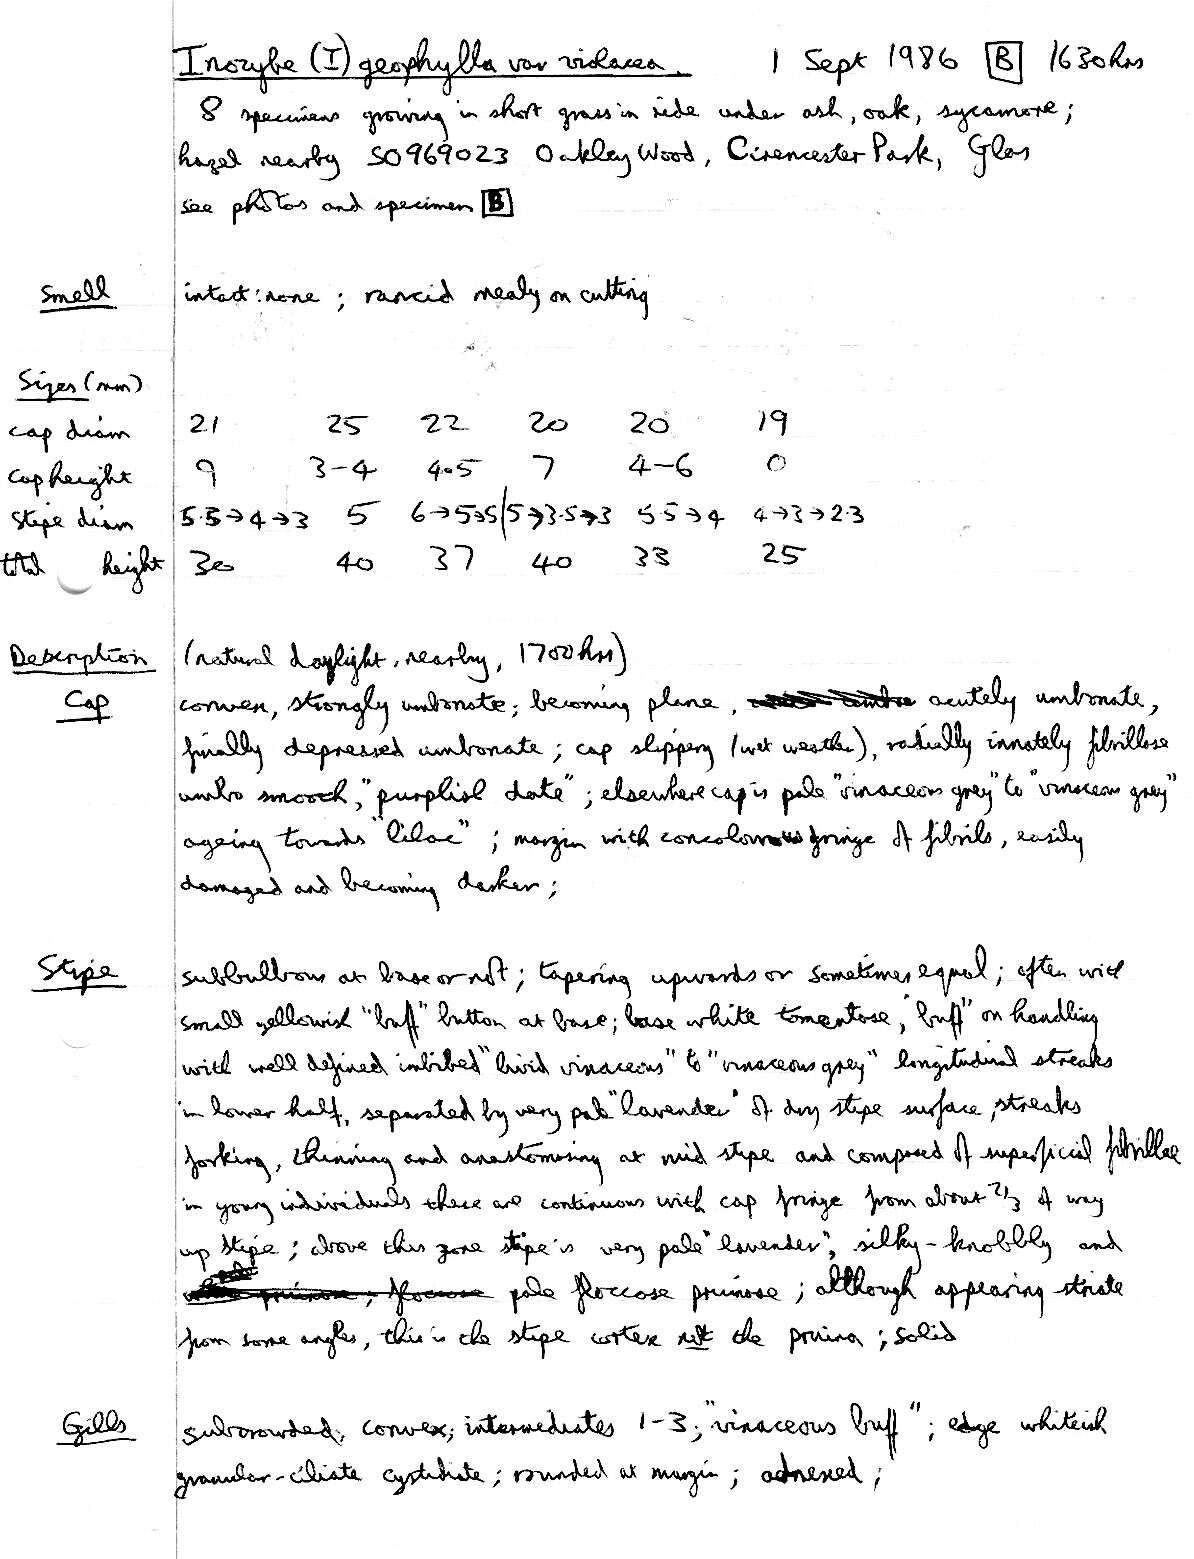 Inocybe (I) geophylla var violacea. 1 Sept 1986 B 1630hrs
8 specimens growing in short grass in ride under ash, oak, sycamore;
hazel nearby SO969023 Oakley Wood, Cirencester Park, Glos
see photos and specimen B
Smell intact: none ; rancid mealy on cutting
Sizes (mm)
cap diam 21 25 22 20 20 19
cap height 9 3-4 4.5 7 4-6 0
Stipe diam 5.5→4→3 5 6→5→5 5→3.5→3 5.5→4 4→3→2.3
total height 30 40 37 40 33 25
Description (natural daylight, nearby, 1700hrs)
Cap convex, strongly umbonate; becoming plane, acutely umbonate,
finally depressed umbonate; cap slippery (wet weather), radially innately fibrillose
umbo smooth, "purplish date"; elsewhere cap is pale "vinaceous grey" to "vinaceous grey"
ageing towards "lilac"; margin with concolorous fringe of fibrils, easily
damaged and becoming darker;
Stipe subbulbous at base or not; tapering upwards or sometimes equal; often with
small yellowish "buff" button at base; base white tomentose, "buff" on handling
with well defined imbibed "livid vinaceous" to "vinaceous grey" longitudinal streaks
in lower half, separated by very pale "lavender" of dry stipe surface, streaks
forking, thinning and anastomosing at mid stipe and composed of superficial fibrillae
in young individuals these are continuous with cap fringe from about 2/3 of way
up stipe; above this zone stipe is very pale "lavender", silky-knobbly and
pale floccose pruinose; although appearing striate
from some angles, this is the stipe cortex not the pruina; solid
Gills subcrowded; convex; intermediates 1-3; "vinaceous buff"; edge whiteish
granular-ciliate cystidiate; rounded at margin; adnexed;